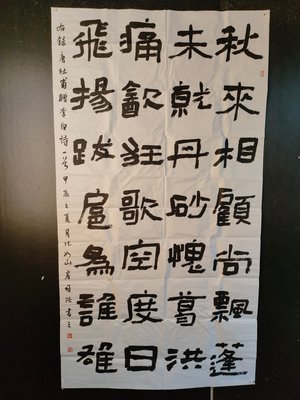 秋來相顧尚飄蓬
未就丹砂愧葛洪
痛㱃狂歌空度日
飛揚跋扈為誰雄
右錄唐杜甫贈李白詩一首 甲辰之夏月 山房 書之